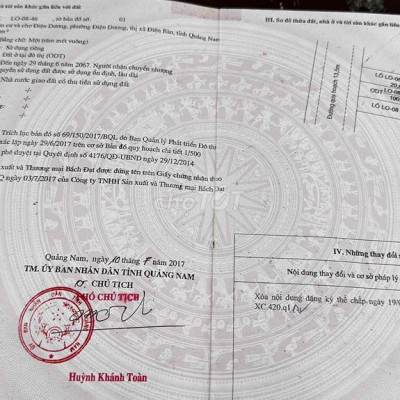 ói tài sản khác gắn liền với đất
LO-08-46 , tờ bản đồ số: 01
ân cư và chợ Điện Dương, phường Điện Dương, thị xã Điện Bàn, tỉnh Quảng Nam
Bằng chữ: Một trăm mét vuông)
Sử dụng riêng
Đất ở tại đô thị (ODT)
Đến ngày 29 tháng 6 năm 2067. Người nhận chuyển nhượng
quyền sử dụng đất được sử dụng ổn định, lâu dài
Nhà nước giao đất có thu tiền sử dụng đất
Trích lục bản đồ số 69/150/2017/BQL do Ban Quản lý Phát triển Đô thị
xác lập ngày 29/6/2017 trên cơ sở Bản đồ quy hoạch chi tiết 1/500
phê duyệt tại Quyết định số 4176/QĐ-UBND ngày 29/12/2014
xuất và Thương mại Bách Đạt được đứng tên trên Giấy chứng nhận theo
Q ngày 03/7/2017 của Công ty TNHH Sản xuất và Thương mại Bách Đạt
Quảng Nam, ngày 10 tháng 7 năm 2017
TM. ỦY BAN NHÂN DÂN TỈNH QUẢNG NAM
CHỦ TỊCH
PHÓ CHỦ TỊCH
Huỳnh Khánh Toàn
III. Sơ đồ thửa đất, nhà ở và tài sản khác gắn liền
Đường quy hoạch 13,5m
LÔ LO-08
ODT
100
LÔ LO-08
chợTỐT
IV. Những thay đổi s
Nội dung thay đổi và cơ sở pháp lý
Xóa nội dung đăng ký thế chấp ngày 19/
XC.420.q1